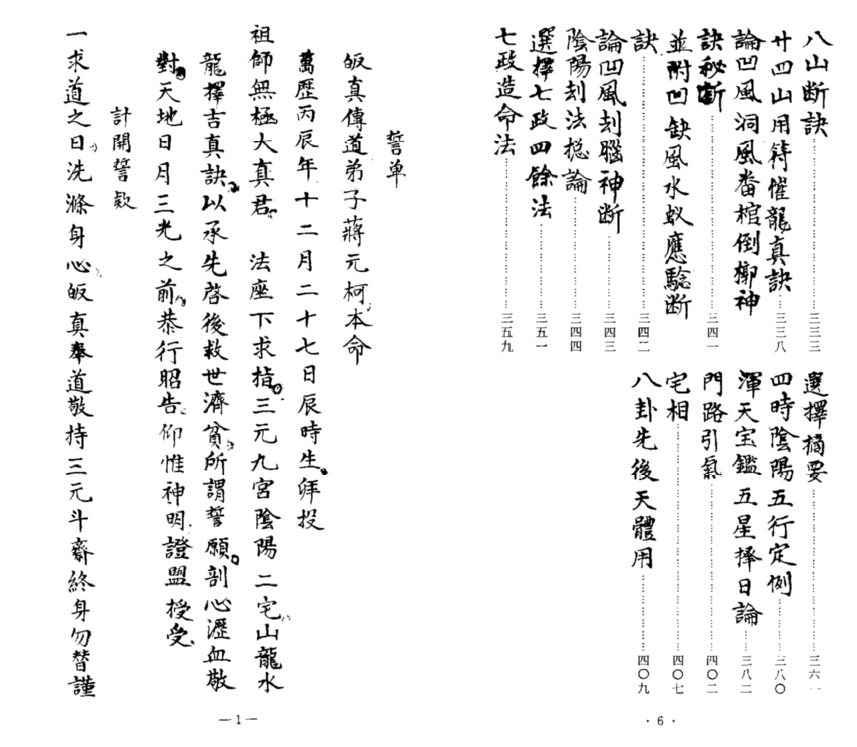 八山断訣……三三三
廿四山用符催龍真訣……三三八
論凹風洞風畨棺倒槨神
訣秘斷……三四一
並附凹缺風水蚁應驗断
訣……三四二
論凹風刦腦神断……三四三
陰陽刦法捴論……三四四
選擇七政四餘法……三五一
七政造命法……三五九
選擇摘要……三六一
四時陰陽五行定例……三八〇
渾天宝鑑五星擇日論……三八二
門路引氣……四〇二
宅相……四〇七
八卦先後天體用……四〇九
·6·
誓单
皈真傳道弟子蔣元柯本命
萬歷丙辰年十二月二十七日辰時生拜投
祖師無極大真君 法座下求指三元九宮陰陽二宅山龍水
龍擇吉真訣以承先啓後救世濟貧所謂誓願剖心瀝血敬
對天地日月三光之前恭行昭告仰惟神明證盟授受
計開誓款
一求道之日洗滌身心皈真奉道敬持三元斗齋終身勿替謹
—1—